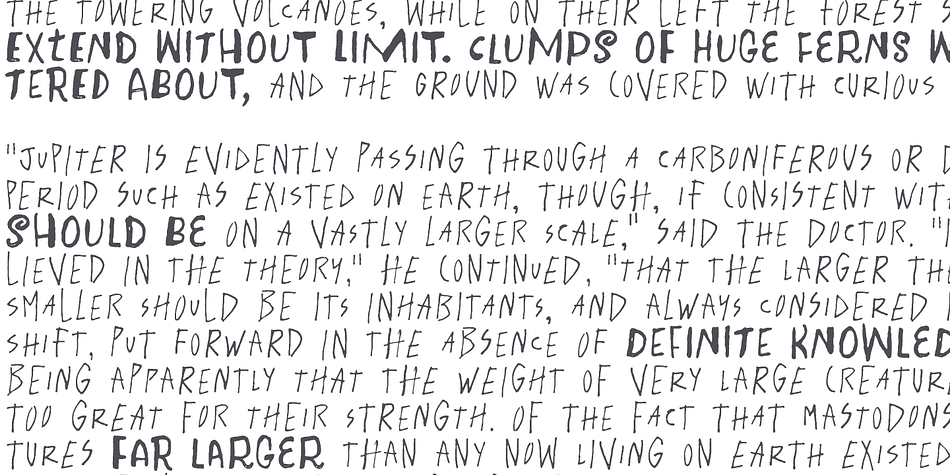 THE TOWERING VOLCANOES, WHILE ON THEIR LEFT THE FOREST
EXTEND WITHOUT LIMIT. CLUMPS OF HUGE FERNS
TERED ABOUT, AND THE GROUND WAS COVERED WITH CURIOUS
"JUPITER IS EVIDENTLY PASSING THROUGH A CARBONIFEROUS OR
PERIOD SUCH AS EXISTED ON EARTH, THOUGH, IF CONSISTENT WITH
SHOULD BE ON A VASTLY LARGER SCALE," SAID THE DOCTOR.
LIEVED IN THE THEORY," HE CONTINUED, "THAT THE LARGER
SMALLER SHOULD BE ITS INHABITANTS, AND ALWAYS CONSIDERED
SHIFT, PUT FORWARD IN THE ABSENCE OF DEFINITE KNOWLED
BEING APPARENTLY THAT THE WEIGHT OF VERY LARGE CREATUR
TOO GREAT FOR THEIR STRENGTH. OF THE FACT THAT MASTODONS
TURES FAR LARGER THAN ANY NOW LIVING ON EARTH EXISTED